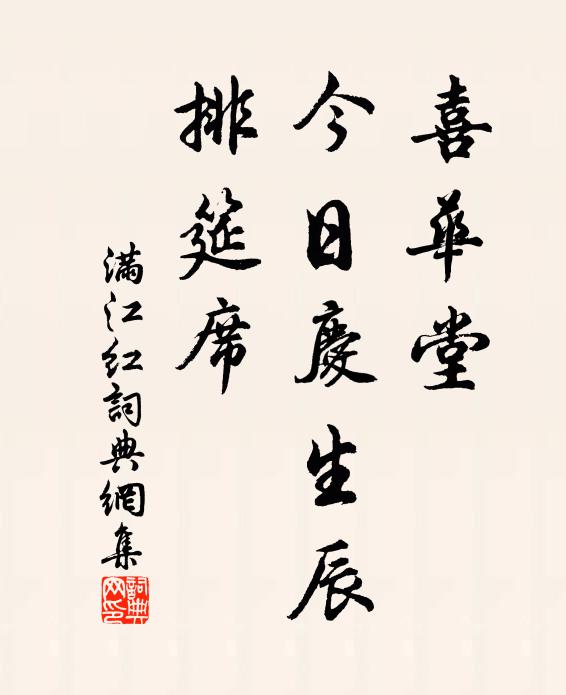 喜華堂
今日慶生辰
排筵席
滿江紅詞典網集
詞典网印